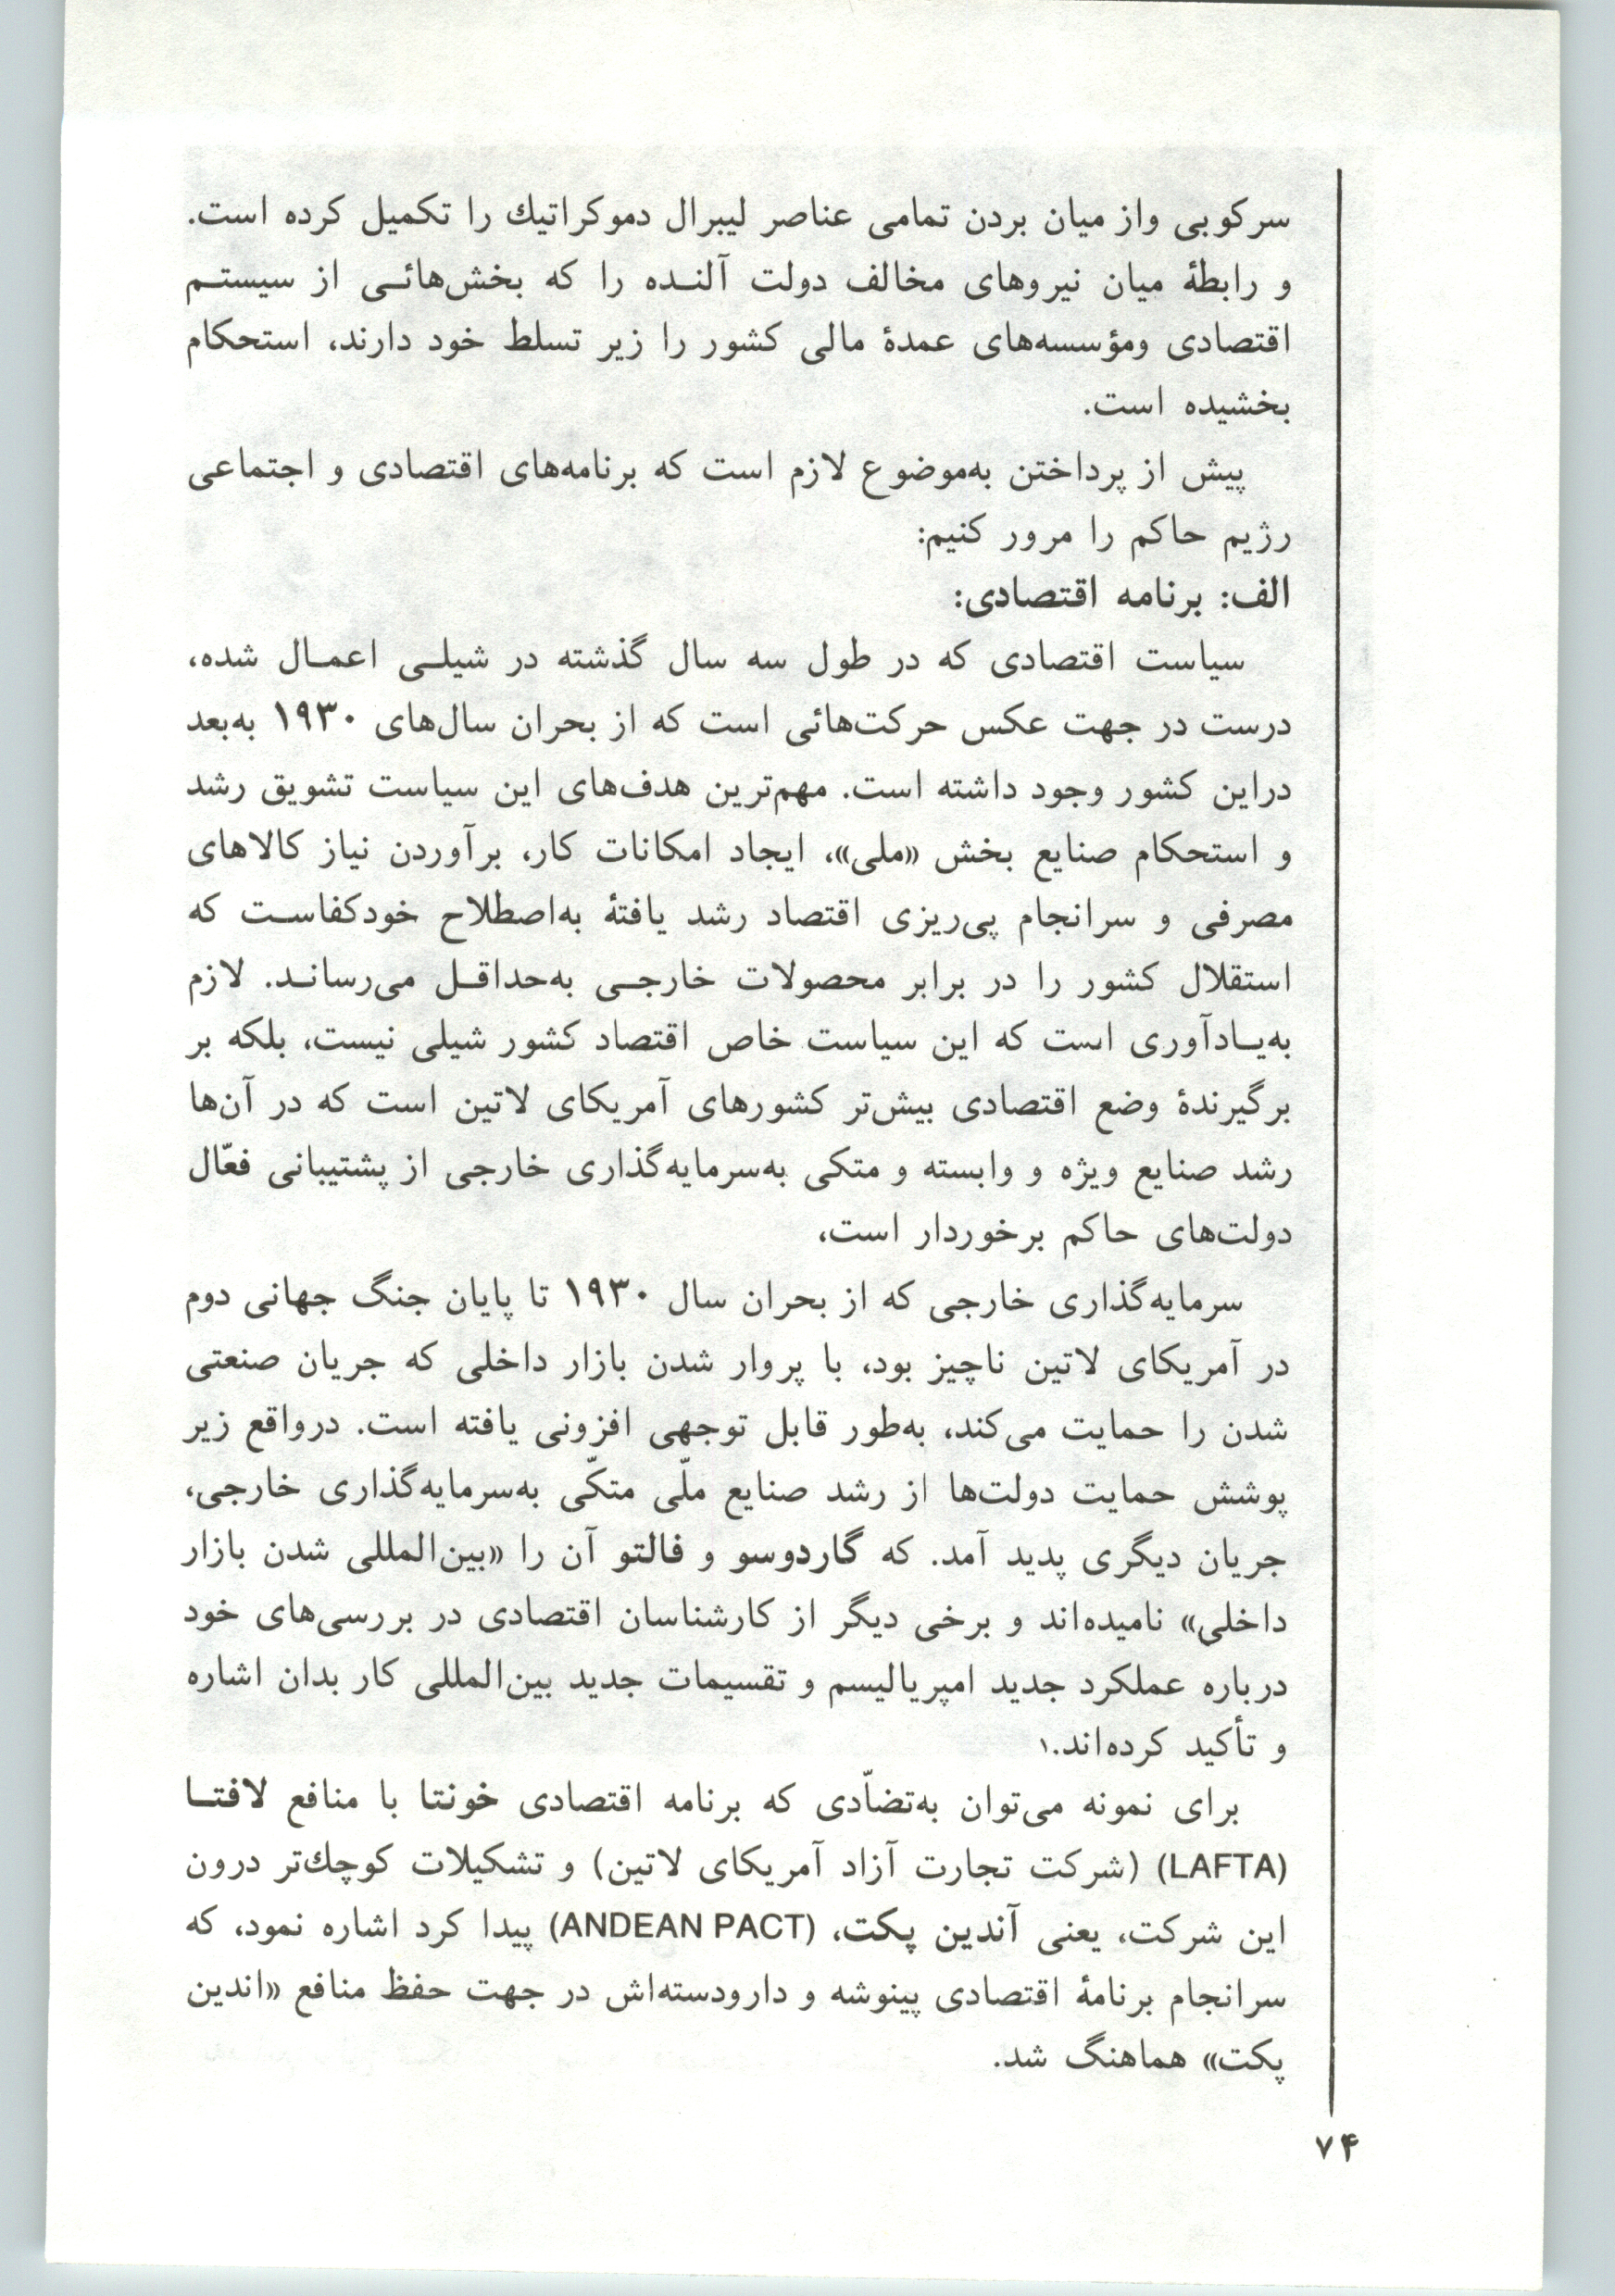 سرکوبی واز میان بردن تمامی عناصر لیبرال دموکراتیك را تکمیل کرده است.
و رابطهٔ میان نیروهای مخالف دولت آلنـده را که بخش‌هائـی از سیستـم
اقتصادی ومؤسسه‌های عمدهٔ مالی کشور را زیر تسلط خود دارند، استحکام
بخشیده است.
پیش از پرداختن به‌موضوع لازم است که برنامه‌های اقتصادی و اجتماعی
رژیم حاکم را مرور کنیم:
الف: برنامه اقتصادی:
سیاست اقتصادی که در طول سه سال گذشته در شیلـی اعمـال شده،
درست در جهت عکس حرکت‌هائی است که از بحران سال‌های ۱۹۳۰ به‌بعد
دراین کشور وجود داشته است. مهم‌ترین هدف‌های این سیاست تشویق رشد
و استحکام صنایع بخش «ملی»، ایجاد امکانات کار، برآوردن نیاز کالاهای
مصرفی و سرانجام پی‌ریزی اقتصاد رشد یافتهٔ به‌اصطلاح خودکفاسـت که
استقلال کشور را در برابر محصولات خارجـی به‌حداقـل می‌رسانـد. لازم
به‌یـادآوری است که این سیاست خاص اقتصاد کشور شیلی نیست، بلکه بر
برگیرندهٔ وضع اقتصادی بیش‌تر کشورهای آمریکای لاتین است که در آن‌ها
رشد صنایع ویژه و وابسته و متکی به‌سرمایه‌گذاری خارجی از پشتیبانی فعّال
دولت‌های حاکم برخوردار است،
سرمایه‌گذاری خارجی که از بحران سال ۱۹۳۰ تا پایان جنگ جهانی دوم
در آمریکای لاتین ناچیز بود، با پروار شدن بازار داخلی که جریان صنعتی
شدن را حمایت می‌کند، به‌طور قابل توجهی افزونی یافته است. درواقع زیر
پوشش حمایت دولت‌ها از رشد صنایع ملّی متکّی به‌سرمایه‌گذاری خارجی،
جریان دیگری پدید آمد. که گاردوسو و فالتو آن را «بین‌المللی شدن بازار
داخلی» نامیده‌اند و برخی دیگر از کارشناسان اقتصادی در بررسی‌های خود
درباره عملکرد جدید امپریالیسم و تقسیمات جدید بین‌المللی کار بدان اشاره
و تأکید کرده‌اند.۱
برای نمونه می‌توان به‌تضاّدی که برنامه اقتصادی خونتا با منافع لافتـا
(LAFTA) (شرکت تجارت آزاد آمریکای لاتین) و تشکیلات کوچك‌تر درون
این شرکت، یعنی آندین پکت، (ANDEAN PACT) پیدا کرد اشاره نمود، که
سرانجام برنامهٔ اقتصادی پینوشه و دارودسته‌اش در جهت حفظ منافع «اندین
پکت» هماهنگ شد.
۷۴